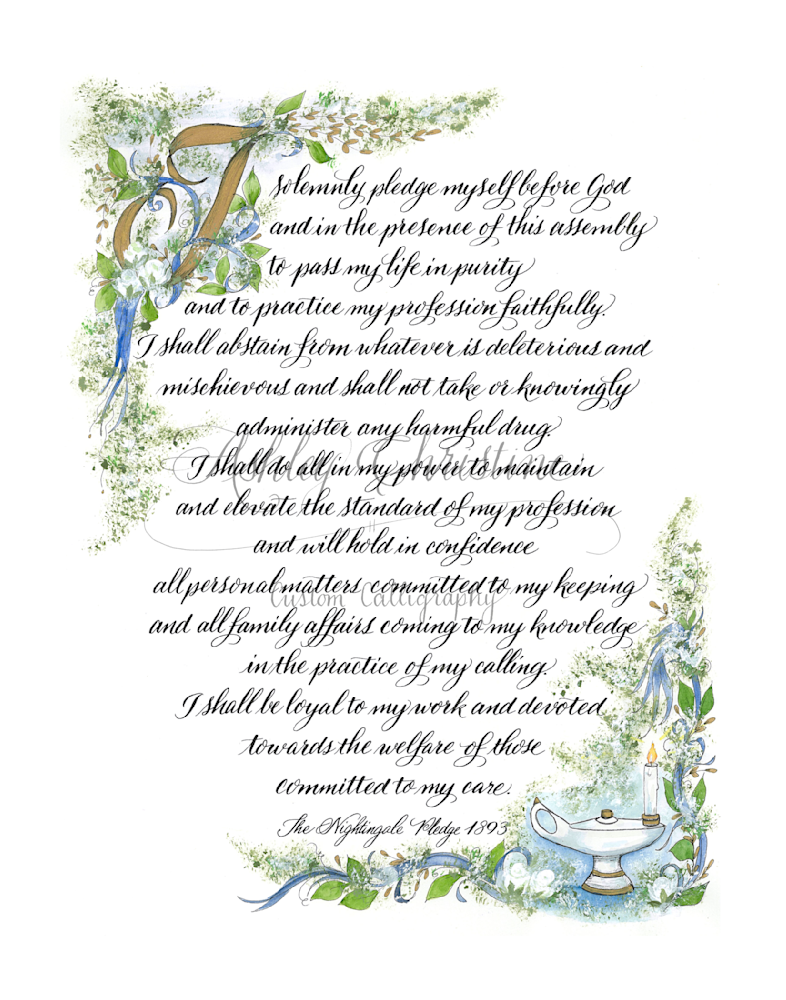 I solemnly pledge myself before God
and in the presence of this assembly
to pass my life in purity
and to practice my profession faithfully.
I shall abstain from whatever is deleterious and
mischievous and shall not take or knowingly
administer any harmful drug.
Ashley Christine
I shall do all in my power to maintain
and elevate the standard of my profession
and will hold in confidence
all personal matters committed to my keeping
Custom Calligraphy
and all family affairs coming to my knowledge
in the practice of my calling.
I shall be loyal to my work and devoted
towards the welfare of those
committed to my care.
The Nightingale Pledge 1893